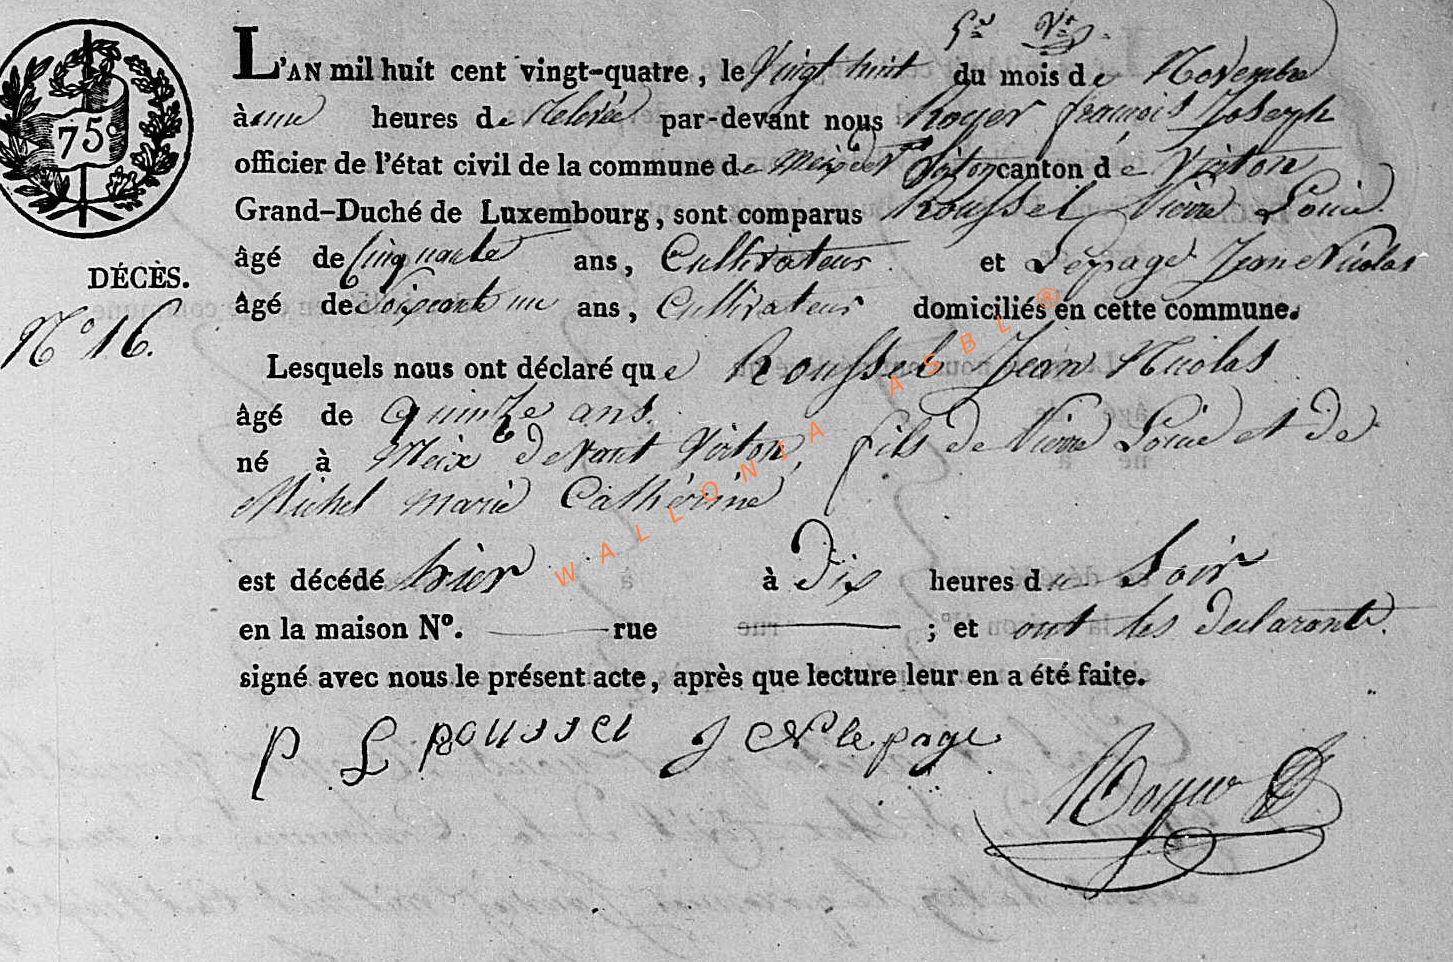 Gd Vt
L'AN mil huit cent vingt-quatre, le Vingt huit du mois de Novembre
à une heures de Relevée par-devant nous Royer françois Joseph
75c
officier de l'état civil de la commune de meix devt virton canton de Virton
Grand-Duché de Luxembourg, sont comparus Roussel Pierre Louis
âgé de Cinquante ans, Cultivateur et Lepage Jean Nicolas
DÉCÈS.
âgé de Soixante un ans, Cultivateur domiciliés en cette commune.
No 16.
Lesquels nous ont déclaré que Roussel Jean Nicolas
âgé de quinze ans.
né à Meix devant virton, fils de Pierre Louis et de
Michel marie Cathérine
est décédé hier à Dix heures du Soir
en la maison No. rue ; et ont les declarants
signé avec nous le présent acte, après que lecture leur en a été faite.
P L Roussel J N lepage
Royer
WALLONIA ASBL ®